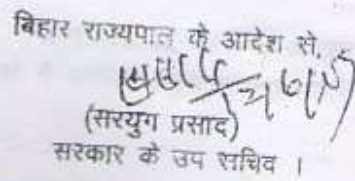 बिहार राज्यपाल के आदेश से,
(सरयुग प्रसाद)
सरकार के उप सचिव ।